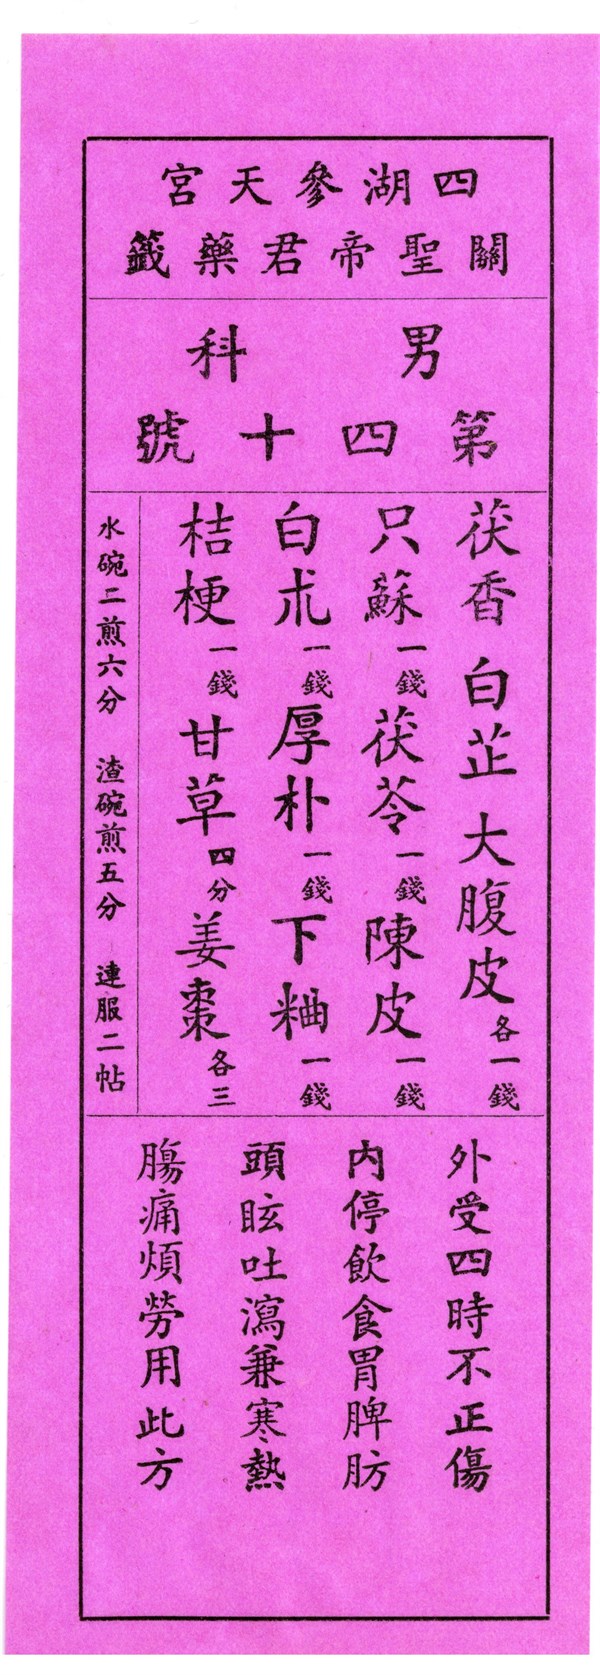 四湖參天宮
關聖帝君藥籤
男科
第四十號
茯香 白芷 大腹皮各一錢
只蘇一錢 茯苓一錢 陳皮一錢
白朮一錢 厚朴一錢 下粬一錢
桔梗一錢 甘草四分 姜棗各三
水碗二煎六分 渣碗煎五分 連服二帖
外受四時不正傷
內停飲食胃脾肪
頭眩吐瀉兼寒熱
腸痛煩勞用此方